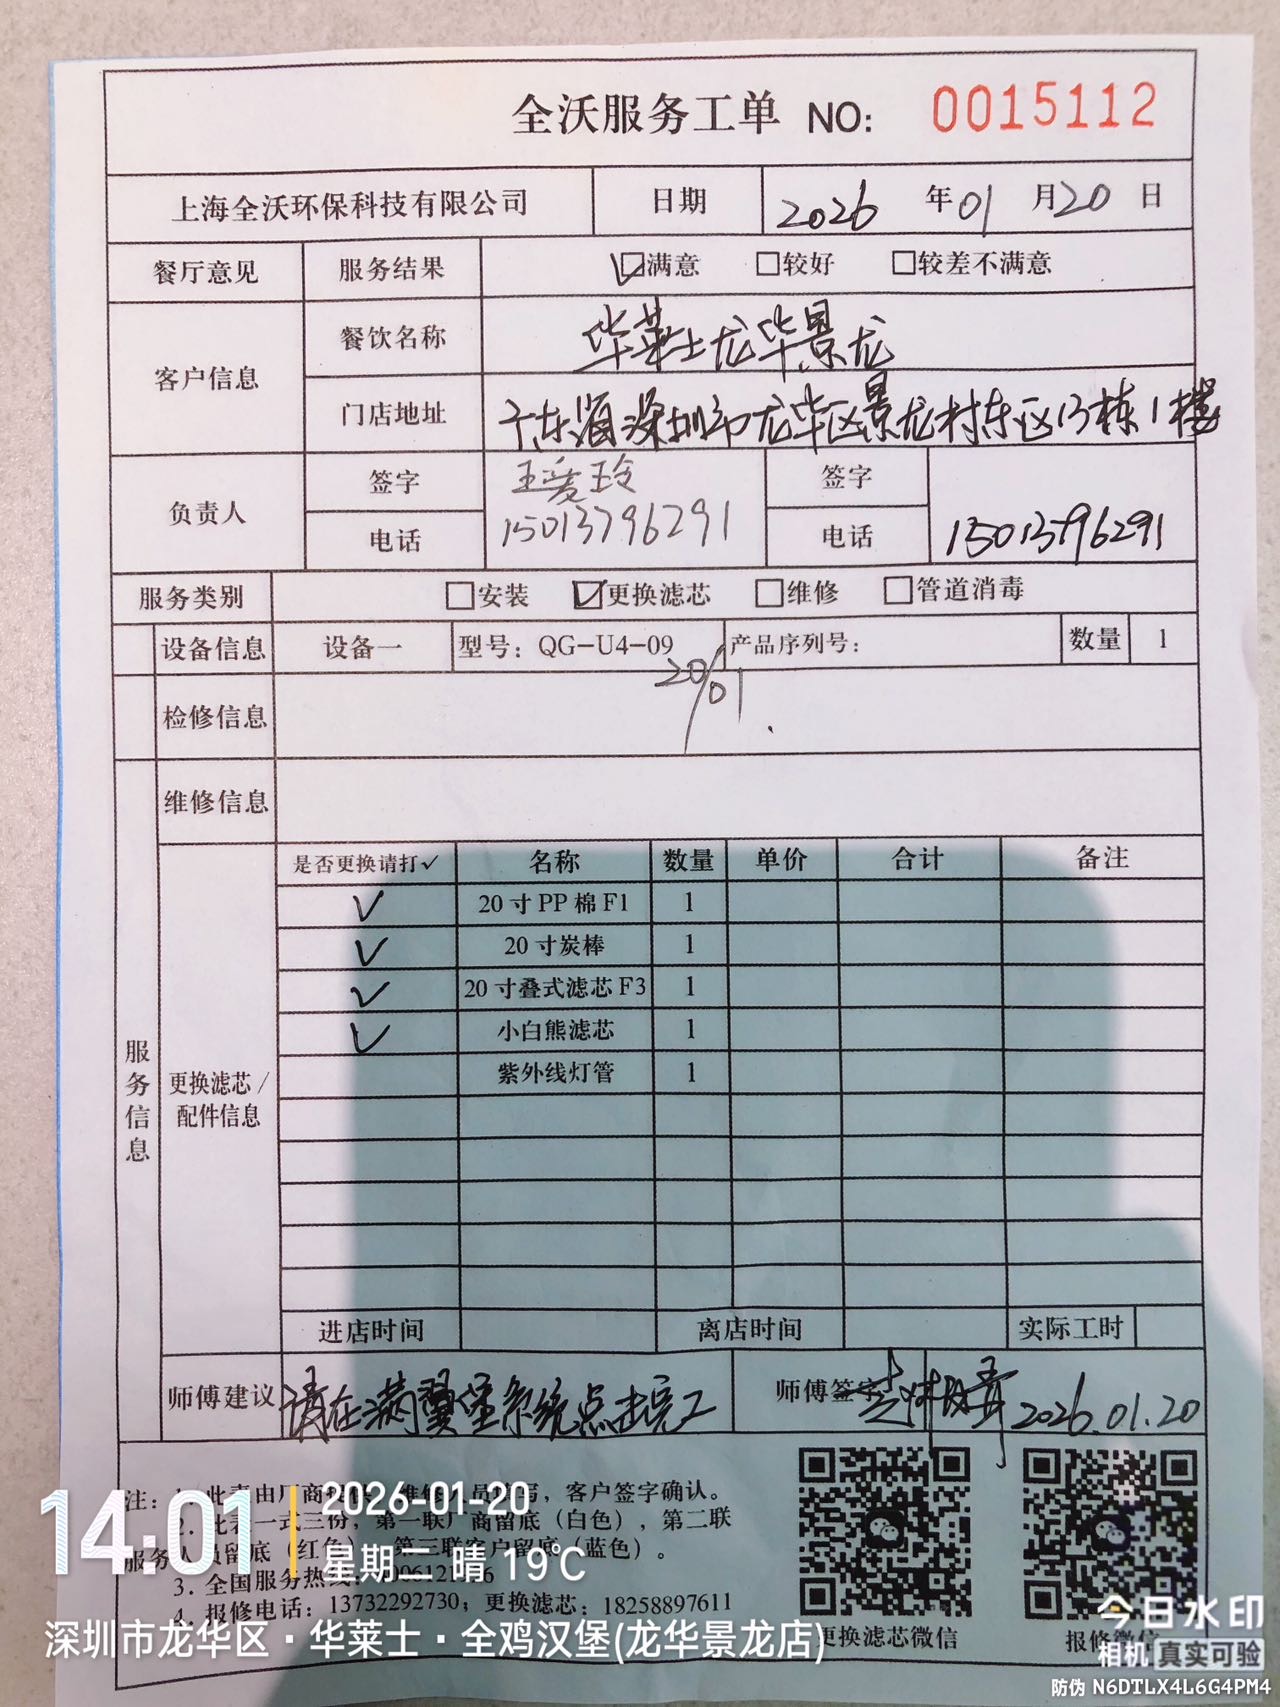 全沃服务工单 NO: 0015112
上海全沃环保科技有限公司 日期 2026 年 01 月 20 日
餐厅意见 服务结果 ☑满意 □较好 □较差不满意
客户信息 餐饮名称 华莱士龙华景龙
门店地址 广东省深圳市龙华区景龙村东区13栋1楼
负责人 签字 王爱玲 签字
电话 15013796291 电话 15013796291
服务类别 □安装 ☑更换滤芯 □维修 □管道消毒
设备信息 设备一 型号: QG-U4-09 产品序列号: 数量 1
20/01.
检修信息
维修信息
服务信息
更换滤芯/配件信息
是否更换请打✓ 名称 数量 单价 合计 备注
✓ 20寸PP棉F1 1
✓ 20寸炭棒 1
✓ 20寸叠式滤芯F3 1
✓ 小白熊滤芯 1
紫外线灯管 1
进店时间 离店时间 实际工时
师傅建议 请在满翼堡系统点击完工 师傅签字 2026.01.20
注: 1. 此表由厂商 维修 员 写，客户签字确认。
2. 此表一式三份，第一联厂商留底（白色），第二联
服务人员留底（红色），第三联客户留底（蓝色）。
3. 全国服务热线:
4. 报修电话: 13732292730; 更换滤芯: 18258897611
更换滤芯微信 报修微信
14:01 2026-01-20
星期二 晴 19℃
深圳市龙华区·华莱士·全鸡汉堡(龙华景龙店)
今日水印
相机 真实可验
防伪 N6DTLX4L6G4PM4